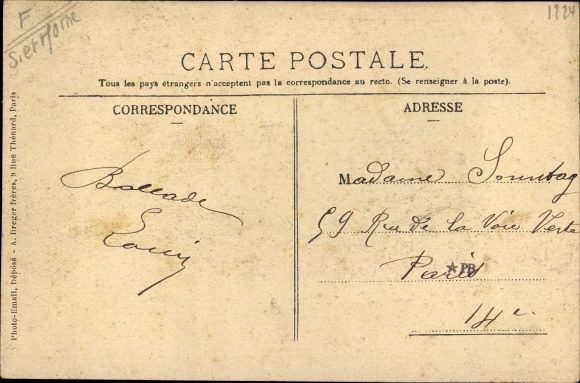 F
S. et Marne
1224
CARTE POSTALE.
Tous les pays étrangers n'acceptent pas la correspondance au recto. (Se renseigner à la poste).
CORRESPONDANCE
ADRESSE
Photo-Email, Déposé - A. Breger frères, 9 Rue Thénard, Paris
Ballade
Louis
Madame Sonntag
59 Rue de la Voie Verte
Paris
★PB
14e